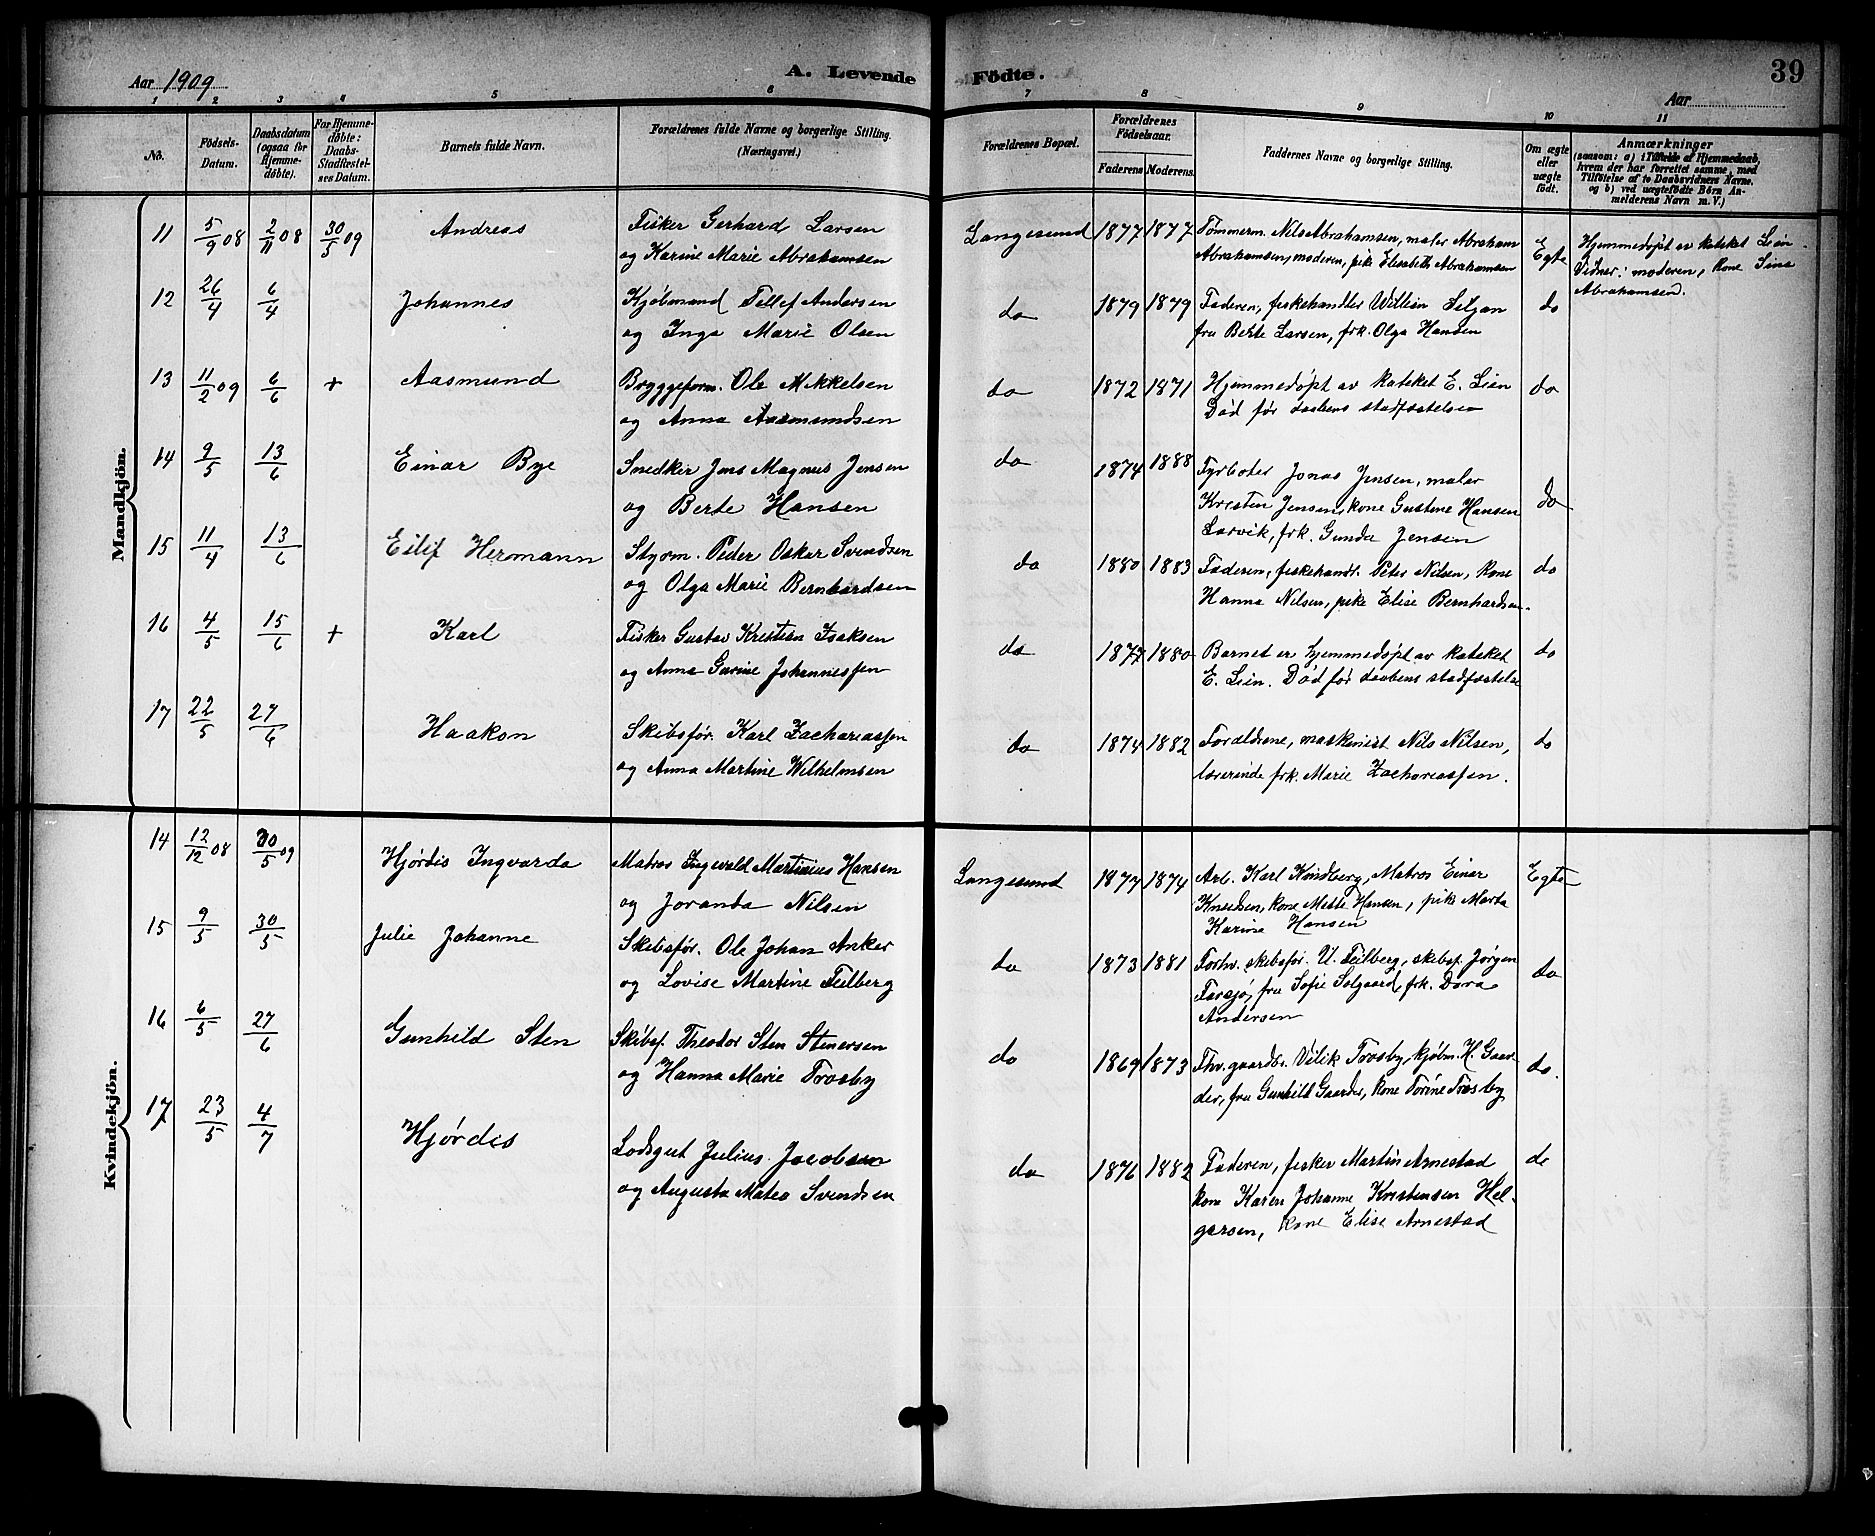 Aar 1909 A. Levende Födte. 39
Aar
1 2 3 4 5 6 7 8 9 10 11
No.
Födsels-Datum.
Daabsdatum (ogsaa for Hjemmedøbte).
For Hjemmedøbte: Daabs-Stadfæstelses Datum.
Barnets fulde Navn.
Forældrenes fulde Navne og borgerlige Stilling.
(Næringsvei.)
Forældrenes Bopæl.
Forældrenes Födselsaar.
Faderens Moderens.
Faddernes Navne og borgerlige Stilling.
Om ægte eller uægte födt.
Anmærkninger
(saasom: a) i Tilfælde af Hjemmedaab,
hvem der har forrettet samme, med
Tilföielse af to Daabsvidners Navne,
og b) ved uægtefödte Börn An-
melderens Navn m. V.)
Mandkjön.
11 5/9 08 2/11 08 30/5 09 Andreas Fisker Gerhard Larsen Langesund 1877 1877 Tømmerm. Nils Abrahamsen, maler Abraham Egte Hjemmedøpt av kateket Lien.
og Karine Marie Abrahamsen Abrahamsen, moderen, pike Elisabeth Abrahamsen Vidner: moderen, kone Sina
Abrahamsen.
12 26/4 6/4 Johannes Kjøbmand Tellef Andersen do 1879 1879 Faderen, fiskehandler Willien Seljan do
og Inga Marie Olsen fru Berte Larsen, frk. Olga Hansen
13 11/2 09 6/6 + Aasmund Bryggeform. Ole Mikkelsen do 1872 1871 Hjemmedøpt av kateket E. Lien do
og Anna Aasmundsen Død før daabens stadfæstelse
14 9/5 13/6 Einar Bye Snedker Jens Magnus Jensen do 1874 1888 Fyrbøter Jonas Jensen, maler
og Berte Hansen Kristen Jensen, kone Gustine Hansen do
Larvik, frk. Gunda Jensen
15 11/4 13/6 Eilif Hermann Styrm. Peder Oskar Svendsen do 1880 1883 Faderen, fiskehandl. Peter Nilsen, kone do
og Olga Marie Bernhardsen Hanna Nilsen, pike Elise Bernhardsen.
16 4/5 15/6 + Karl Fisker Gustav Kristian Isaksen do 1877 1880 Barnet er hjemmedøpt av kateket do
og Anna Gurine Johannessen E. Lien. Død før daabens stadfæstelse
17 22/5 27/6 Haakon Skibsfør. Karl Zachariassen do 1874 1882 Forældrene, maskinist Nils Nilsen, do
og Anna Martine Wilhelmsen lærerinde frk. Marie Zachariassen.
Kvindekjön.
14 12/12 08 30/5 09 Hjørdis Ingvarda Matros Ingvald Martinius Hansen Langesund 1877 1874 Arb. Karl Kindberg, Matros Einar Egte
og Joranda Nilsen Knudsen, kone Mette Hansen, pike Marta
Karine Hansen
15 9/5 30/5 Julie Johanne Skibsfør. Ole Johan Anker do 1873 1881 Forhv. skibsfør. U. Feilberg, skibsf. Jørgen do
og Lovise Martine Feilberg Farsjø, fru Sofie Solgaard, frk. Dora
Andersen
16 6/5 27/6 Gunhild Sten Skibsf. Theodor Sten Stenersen do 1869 1873 Fhv. gaardbr. Velik Trosby, kjøbm. H. Gaar- do.
og Hanna Marie Trosby der, fru Gunhild Gaarder, kone Torine Trosby
17 23/5 4/7 Hjørdis Lodsgut Julius Jacobsen do 1876 1882 Faderen, fisker Martin Arnestad do
og Augusta Matea Svendsen kone Karen Johanne Kristensen Hel-
gersen, kone Elise Arnestad